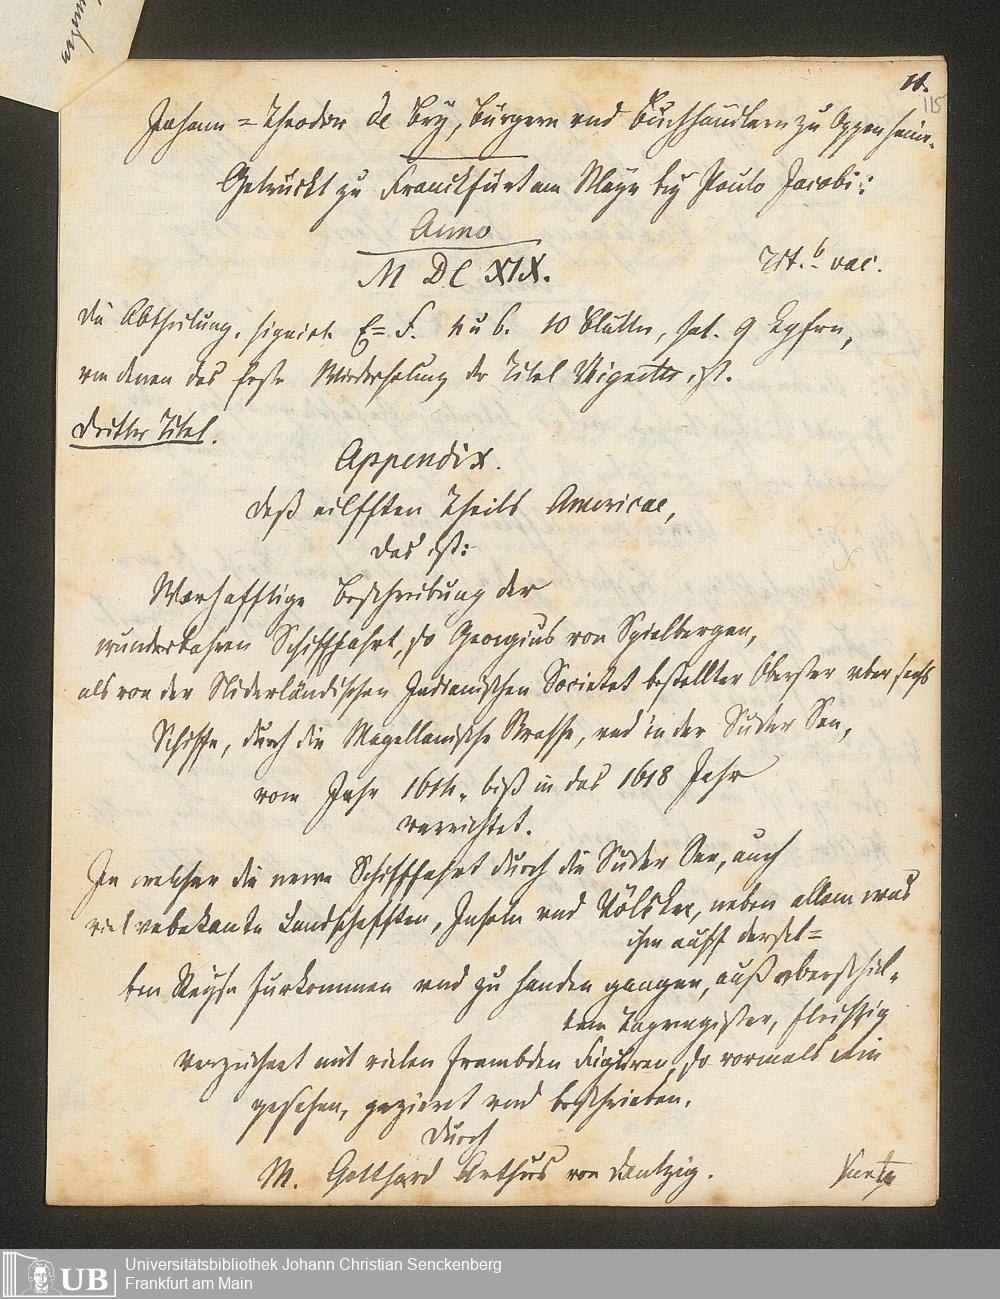 11.
115
Johann = Theodor de Bry, Bürgern vnd Buchhändlern zu Oppenheim.
Getruckt zu Franckfurt am Mayn bey Paulo Jacobi:
Anno
M DC XIX.
Tit. b vac.
Die Abtheilung, signirt E= F. 10 Blätter, hat 9 Kpfrn,
von denen das erste Wiederholung der Titel Vignette ist.
Dritter Titel.
Appendix.
deß eilfften Theils Americae,
Das ist:
Warhafftige Beschreibung der
wunderbahren Schifffahrt, so Georgius von Spielbergen,
als von der Niderländischen Indianischen Societet bestellter Oberster vber sechs
Schiffe, durch die Magellanische Strasse, vnd in der Suder See,
vom Jahr 1614. biß in das 1618 Jahr
verrichtet.
In welcher die newe Schifffahrt durch die Suder See, auch
viel vnbekante Landschafften, Inseln vnd Völcker, neben allem was
ihm auff dersel=
ben Reyse furkommen vnd zu handen gangen, auß
fleissig
verzeichnet mit vielen frembden Figuren, so vormals nie
gesehen, gezieret vnd beschrieben,
Durch
M. Gotthard Arthus von Dantzig.